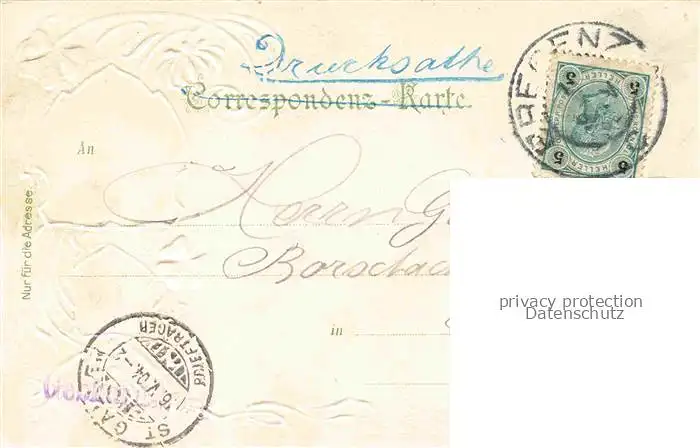 Drucksache
Correspondenz-Karte.
BREGENZ
5 5
HELLER
5 5
An
Herrn G
Borschach
in
Nur für die Adresse.
privacy protection
Datenschutz
ST. GALLEN
BRIEFTRÄGER